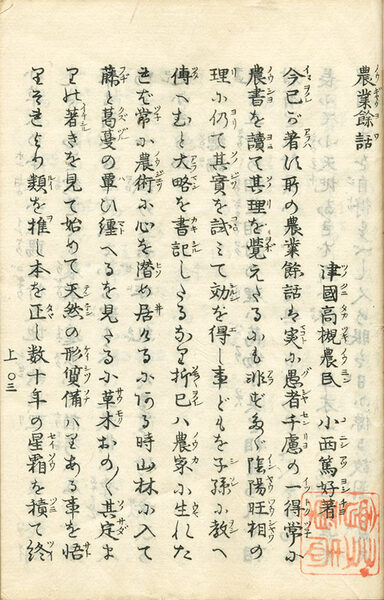 農業餘話
津國高槻農民 小西篤好著
今已が著す所の農業餘話ハ実に愚者千慮の一得常に
農書を讀て其理を覚えたるにも非ず多く陰陽旺相の
理に仍て其實を試ミて効を得し事どもを子孫に教へ
傳へむと大略を書記したるなり拆已ハ農家に生れた
れば常に農術に心を潜め居たるに或る時山林に入て
藤と葛蔓の葉ひ纏へるを見たるに草木おの〳〵其定ま
りの著きを見て始めて天然の形質備ハりある事を悟
りそれより類を推し本を正し数十年の星霜を積て終
上〇三